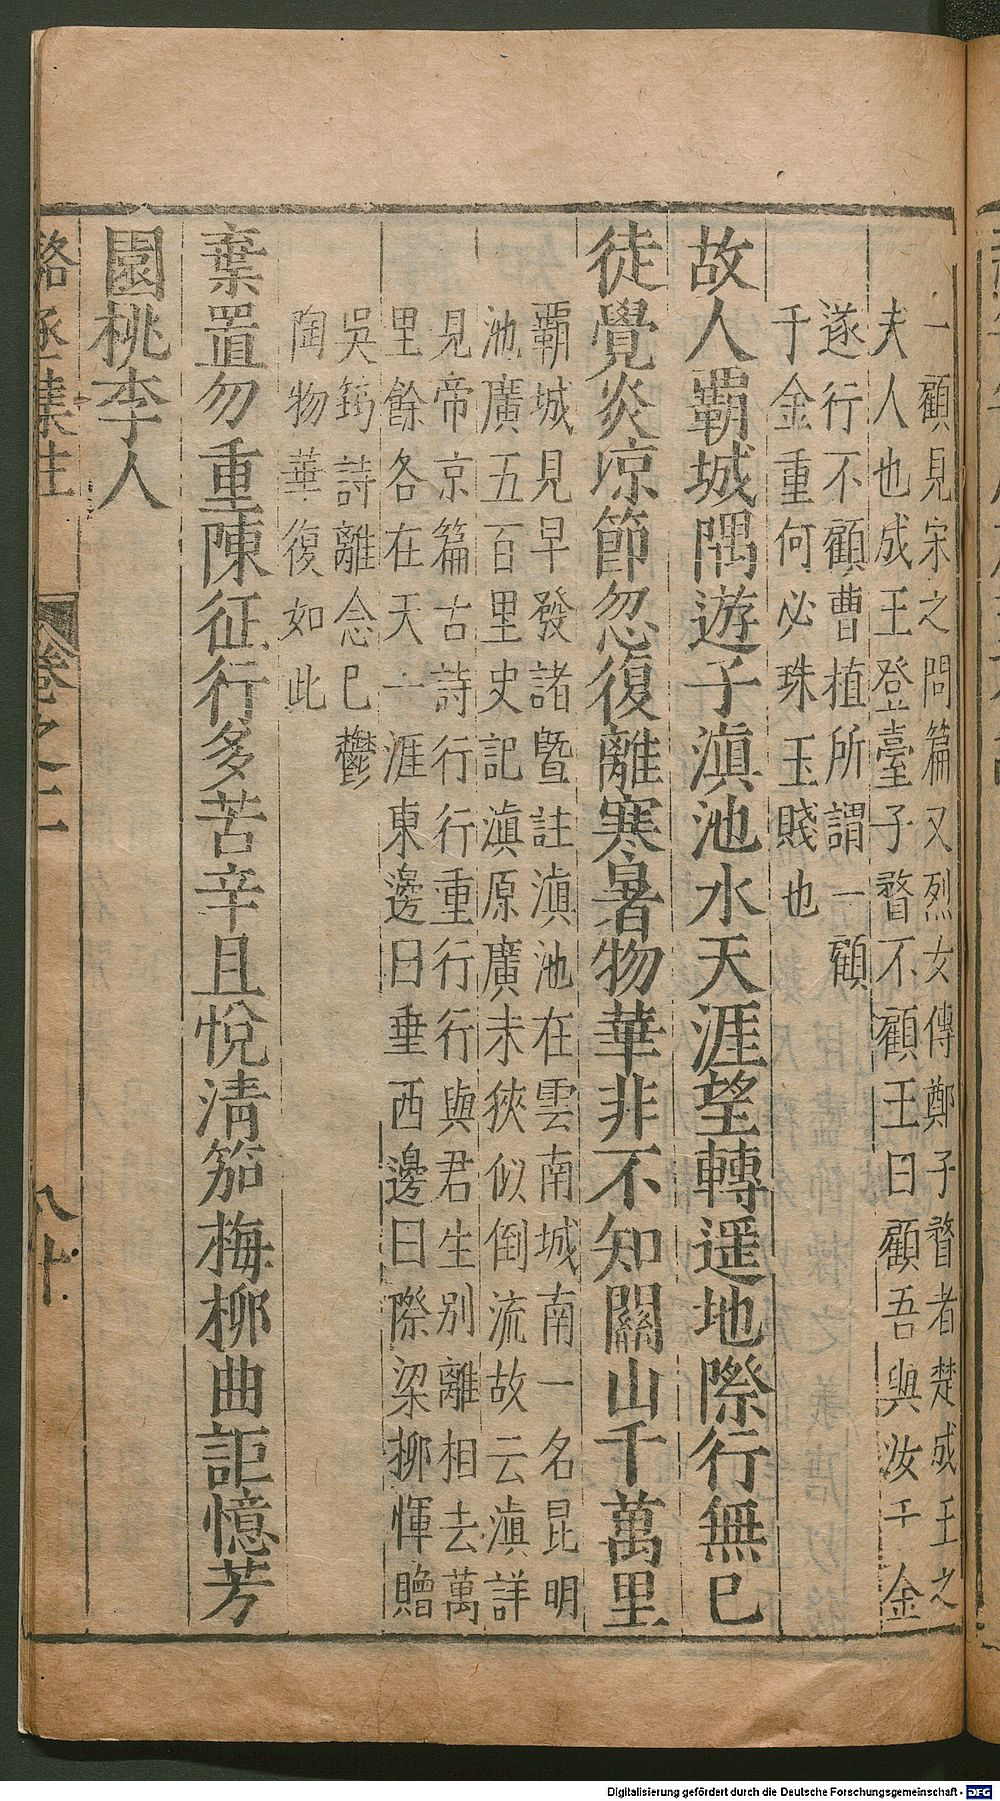 一顧見宋之問篇又烈女傳鄭子瞀者楚成王之
夫人也成王登臺子瞀不顧王曰顧吾與汝千金
遂行不顧曹植所謂一顧
千金重何必珠玉賤也
故人霸城隅遊子滇池水天涯望轉遥地際行無已
徒覺炎凉節忽復離寒暑物華非不知關山千萬里
霸城見早發諸曁註滇池在雲南城南一名昆明
池廣五百里史記滇原廣未狹似倒流故云滇詳
見帝京篇古詩行行重行行與君生别離相去萬
里餘各在天一涯東邊曰垂西邊曰際梁柳惲贈
吳筠詩離念已鬱
陶物華復如此
棄置勿重陳征行多苦辛且悅清笳梅柳曲詎憶芳
園桃李人
駱丞集註 卷之二 八十
Digitalisierung gefördert durch die Deutsche Forschungsgemeinschaft - DFG